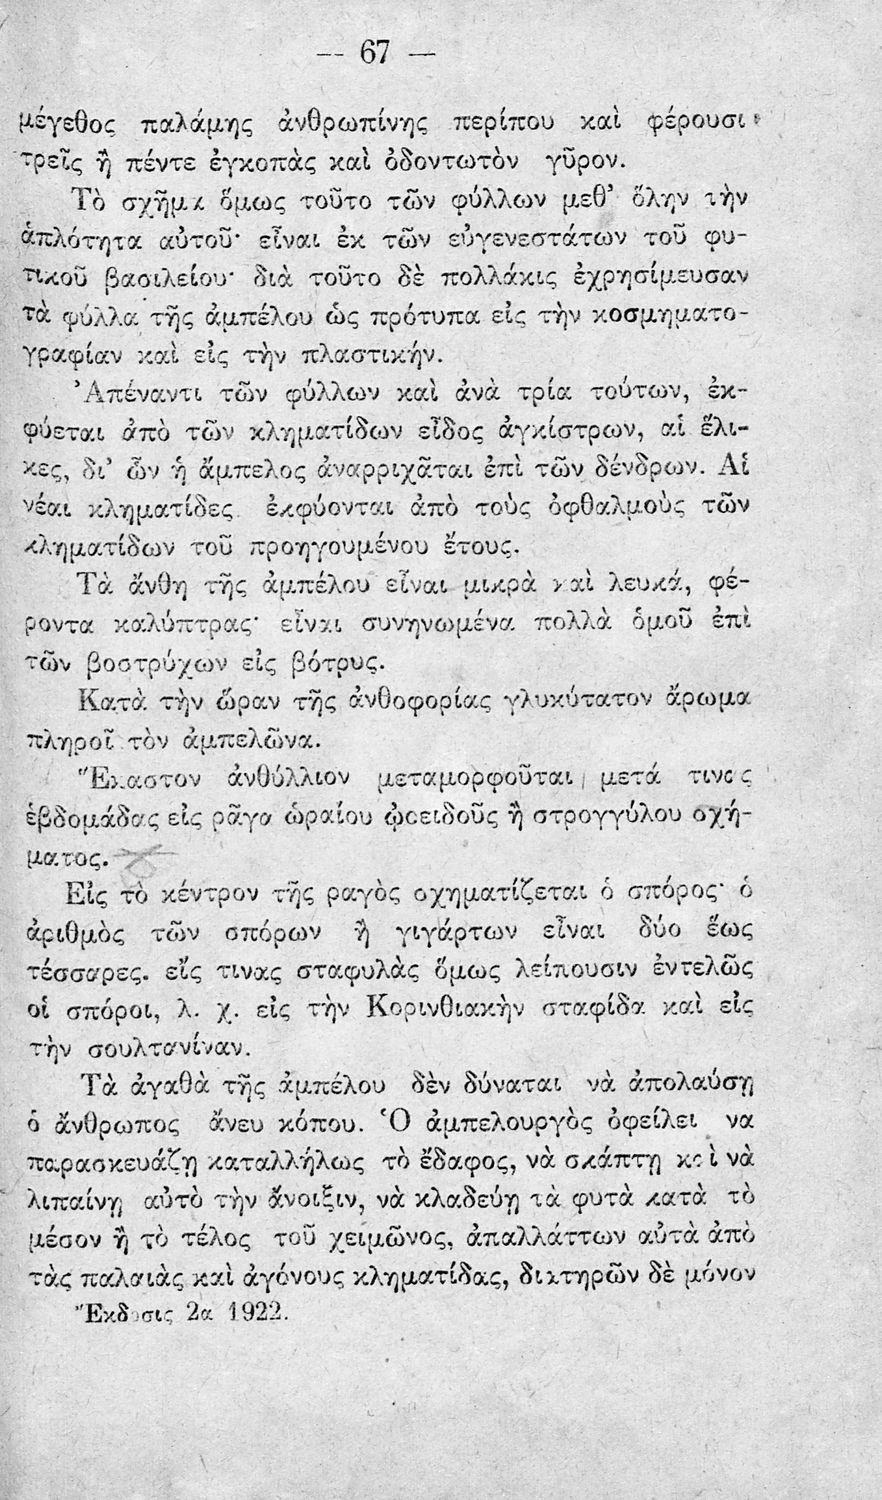 — 67 —
μέγεθος παλάμης ἀνθρωπίνης περίπου καὶ φέρουσι
τρεῖς ἢ πέντε ἐγκοπὰς καὶ ὀδοντωτὸν γῦρον.
Τὸ σχῆμα ὅμως τοῦτο τῶν φύλλων μεθ’ ὅλην τὴν
ἁπλότητα αὐτοῦ· εἶναι ἐκ τῶν εὐγενεστάτων τοῦ φυ-
τικοῦ βασιλείου· διὰ τοῦτο δὲ πολλάκις ἐχρησίμευσαν
τὰ φύλλα τῆς ἀμπέλου ὡς πρότυπα εἰς τὴν κοσμηματο-
γραφίαν καὶ εἰς τὴν πλαστικήν.
Ἀπέναντι τῶν φύλλων καὶ ἀνὰ τρία τούτων, ἐκ-
φύεται ἀπὸ τῶν κληματίδων εἶδος ἀγκίστρων, αἱ ἕλι-
κες, δι’ ὧν ἡ ἄμπελος ἀναρριχᾶται ἐπὶ τῶν δένδρων. Αἱ
νέαι κληματίδες ἐκφύονται ἀπὸ τοὺς ὀφθαλμοὺς τῶν
κληματίδων τοῦ προηγουμένου ἔτους.
Τὰ ἄνθη τῆς ἀμπέλου εἶναι μικρὰ καὶ λευκά, φέ-
ροντα καλύπτρας· εἶναι συνηνωμένα πολλὰ ὁμοῦ ἐπὶ
τῶν βοστρύχων εἰς βότρυς.
Κατὰ τὴν ὥραν τῆς ἀνθοφορίας γλυκύτατον ἄρωμα
πληροῖ τὸν ἀμπελῶνα.
Ἕκαστον ἀνθύλλιον μεταμορφοῦται μετά τινας
ἑβδομάδας εἰς ρᾶγα ὡραίου ᾠοειδοῦς ἢ στρογγύλου σχή-
ματος.
Εἰς τὸ κέντρον τῆς ραγὸς σχηματίζεται ὁ σπόρος· ὁ
ἀριθμὸς τῶν σπόρων ἢ γιγάρτων εἶναι δύο ἕως
τέσσαρες. εἴς τινας σταφυλὰς ὅμως λείπουσιν ἐντελῶς
οἱ σπόροι, λ. χ. εἰς τὴν Κορινθιακὴν σταφίδα καὶ εἰς
τὴν σουλτανίναν.
Τὰ ἀγαθὰ τῆς ἀμπέλου δὲν δύναται νὰ ἀπολαύσῃ
ὁ ἄνθρωπος ἄνευ κόπου. Ὁ ἀμπελουργὸς ὀφείλει να
παρασκευάζῃ καταλλήλως τὸ ἔδαφος, νὰ σκάπτῃ καὶ νὰ
λιπαίνῃ αὐτὸ τὴν ἄνοιξιν, νὰ κλαδεύῃ τὰ φυτὰ κατὰ τὸ
μέσον ἢ τὸ τέλος τοῦ χειμῶνος, ἀπαλλάττων αὐτὰ ἀπὸ
τὰς παλαιὰς καὶ ἀγόνους κληματίδας, διατηρῶν δὲ μόνον
Ἔκδοσις 2α 1922.